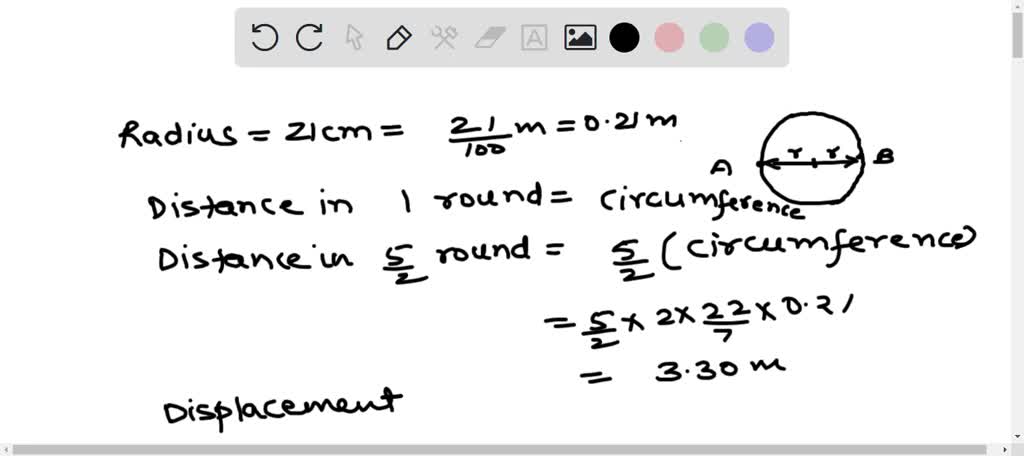 Radius = 21cm = 21/100 m = 0.21 m
A r r B
Distance in 1 round = circumference
Distance in 5/2 round = 5/2 (circumference)
= 5/2 × 2 × 22/7 × 0.21
= 3.30 m
Displacement